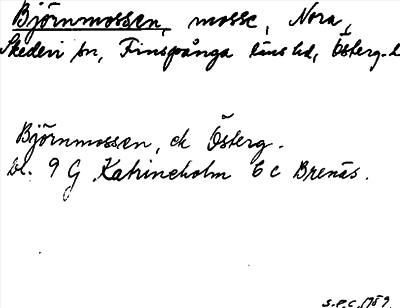 Björnmossen, mosse, Nora,
Skedevi sn, Finspånga läns hd, Österg. l
Björnmossen, ek Österg.
bl. 9 G Katrineholm 6 c Brenäs.